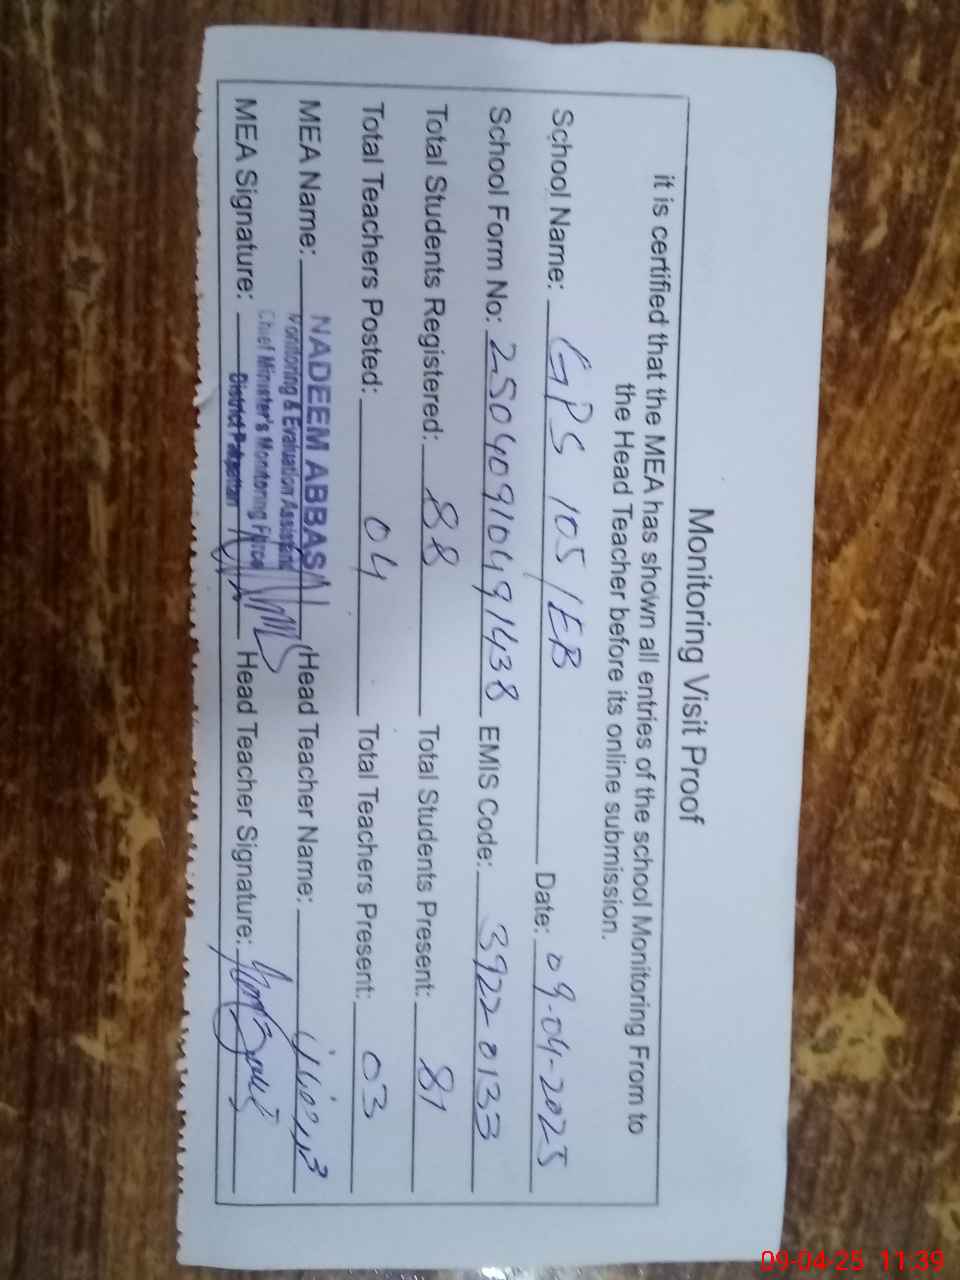 Monitoring Visit Proof
it is certified that the MEA has shown all entries of the school Monitoring From to
the Head Teacher before its online submission.
School Name: GPS 105/EB Date: 09-04-2025
School Form No: 25040910491438 EMIS Code: 39220133
Total Students Registered: 88 Total Students Present: 81
Total Teachers Posted: 04 Total Teachers Present: 03
MEA Name: NADEEM ABBAS Head Teacher Name:
Monitoring & Evaluation Assistant
Chief Minister's Monitoring Force
MEA Signature: District Pakpattan Head Teacher Signature:
09-04-25 11:39